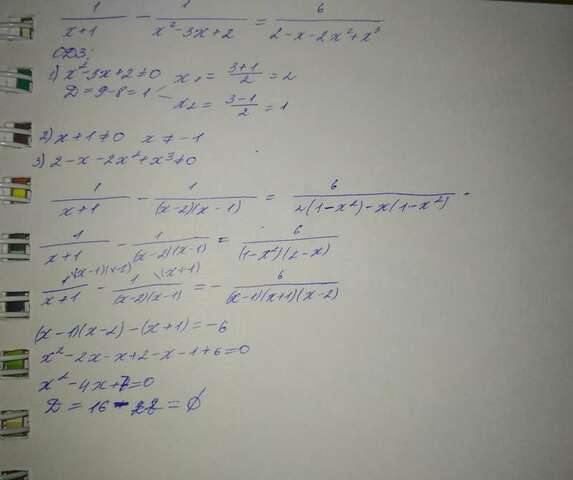 1/(x+1) - 1/(x²-3x+2) = 6/(2-x-2x²+x³)
ОДЗ:
1) x²-3x+2≠0 x₁ = (3+1)/2 = 2
D = 9-8 = 1 x₂ = (3-1)/2 = 1
2) x+1≠0 x≠-1
3) 2-x-2x²+x³≠0
1/(x+1) - 1/((x-2)(x-1)) = 6/(2(1-x²)-x(1-x²))
1/(x+1) - 1/((x-2)(x-1)) = 6/((1-x²)(2-x))
1\(x-1)(x-2)/(x+1) - 1\(x+1)/((x-2)(x-1)) = - 6/((x-1)(x+1)(x-2))
(x-1)(x-2)-(x+1)=-6
x²-2x-x+2-x-1+6=0
x²-4x+7=0
D = 16 - 28 = ∅